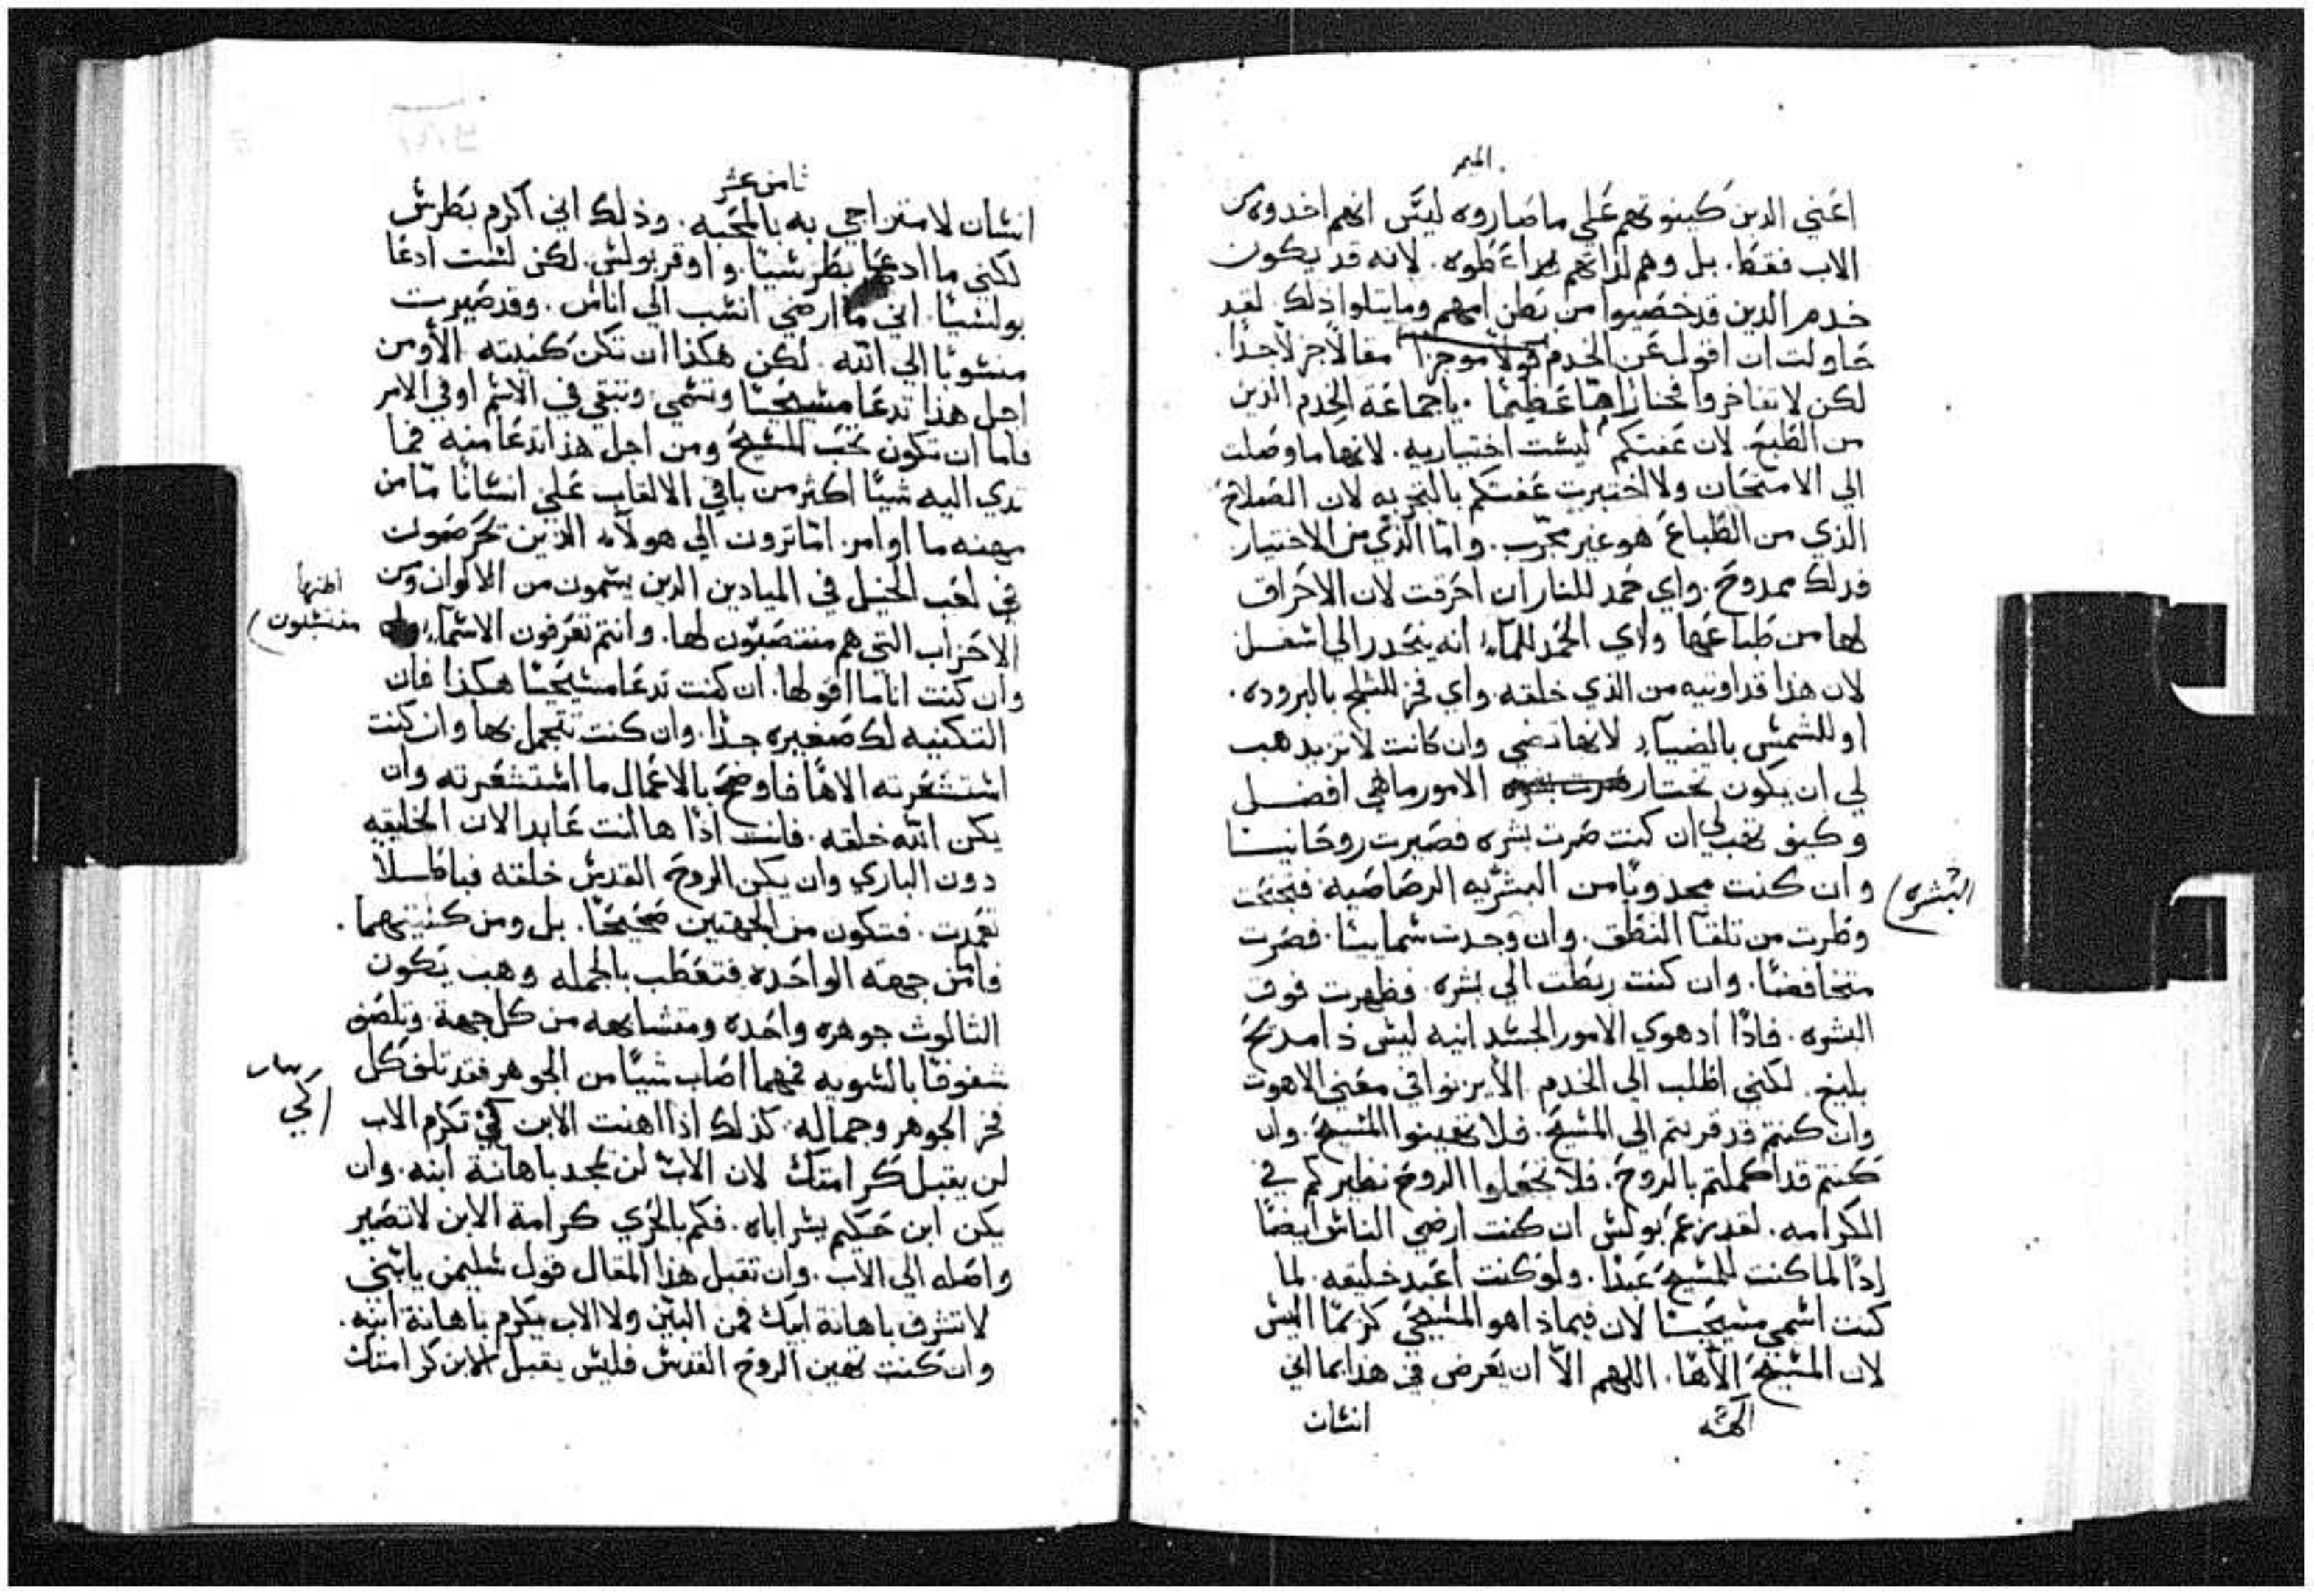 الميمر
اعني الدين كينوتهم علي ما صاروه ليس انهم اخدوه من
الاب فقط. بل وهم لذاتهم قد اعطوه. لانه قد يكون
خدم الدين قد خصيوا من بطن امهم وما يتلوا ذلك لقد
حاولت ان اقول عن الخدم قولا موجزا مقالا جزلا جدا.
لكن لا تفاخروا فخارا هما عظيما. يا جماعة الخدم الدين
من الطبع. لان عفتكم ليست اختياريه. لانها ما وصلت
الي الامتحان ولا اختبرت عفتكم بالتجربه لان الصلاح
الذي من الطباع هو غير مجرب. واما الذي من الاختيار
فدلك ممدوح. واي حمد للنار ان احرقت لان الاحراق
لها من طباعها واي الحمد للماء انه ينحدر الي اسفل
لان هذا قد اوتيه من الذي خلقه. واي فخر للثلج بالبروده.
او للشمس بالضياء لانها تضي وان كانت لا تريد هب
لي ان يكون تختار الامور ما هي افضل
وكيف تهب لي ان كنت صرت بشره فصيرت روحانيا
وان كنت مجدوبا من البشريه الرصاصيه فنجحت
البشره
وطرت من تلقا النطق. وان وجدت سماييا. فصرت
متخافضا. وان كنت ربطت الي بشره. فظهرت فوق
البشره. فاذا اد هوي الامور الجسدانيه ليس ذا مديح
بليغ. لكني اطلب الي الخدم الا يزنوا في معني الاهوت
وان كنتم قد قربتم الي المسيح. فلا تهينوا المسيح. وان
كنتم قد اكملتم بالروح. فلا تجعلوا الروح نظيركم في
الكرامه. لقد يزعم بولس ان كنت ارضي الناس ايضا
اذا لما كنت للمسيح عبدا. ولو كنت اعبد خليقه. لما
كنت اسمي مسيحيا لان فيماذا هو المسيحي كريما اليس
لان المسيح الاها. اللهم الا ان يعرض في هدا بما اني
انسان
ثامن عشر
انسان لامتزاجي به بالمحبه. وذلك اني اكرم بطرس
لكني ما ادعا بطرسيا. واوقر بولس. لكن لست ادعا
بولسيا. اني ما ارضي انسب الي اناس. وقد صيرت
منسوبا الي الله. لكن هكذا ان تكن كنيته الا ومن
اجل هذا تدعا مسيحيا وتسمي وتبقي في الاسم او في الامر
فاما ان تكون تحب المسيح ومن اجل هذا تدعا منه فما
تدي اليه شيا اكثر من باقي الالقاب علي انسانا ما من
مهنه ما او امر. اما ترون الي هولاء الذين تحرصون
في لعب الخيل في الميادين الدين يسمون من الالوان ومن
الاحزاب التي هم منتصبون لها. وانتم تعرفون الاسماء
منتسبون
وان كنت انا ما اقولها. ان كنت تدعا مسيحيا هكذا فان
التكنيه لك صغيره جدا. وان كنت تتجمل بها وان كنت
استشعرته الاها فاوضح بالاعمال ما استشعرته وان
يكن الله خلقه. فانت اذا ها انت عابد الان الخليقه
دون الباري وان يكن الروح القدس خلقته فباطلا
تعمدت. فتكون من الجهتين صحيحا. بل ومن كنيتهما.
فاما من جهة الواحده فتعطب بالجمله وهب يكون
الثالوث جوهره واحده ومتشابهه من كل جهة. وتلصق
شغوفا بالسويه فمهما اصاب شيا من الجوهر فقد تلف كل
فخر الجوهر وجماله. كذلك اذا اهنت الابن كي تكرم الاب
كي
لن يقبل كرامتك لان الاب لن يمجد باهانة ابنه. وان
يكن ابن حكيم يسر اباه. فكم بالحري كرامة الابن لا تصير
واصله الي الاب. وان تقبل هذا المقال قول سليمن يا ابني
لا تتشرف باهانة ابيك فمن البين ولا الاب يكرم باهانة ابنه.
وان كنت تهين الروح القدس فليس يقبل الابن كرامتك